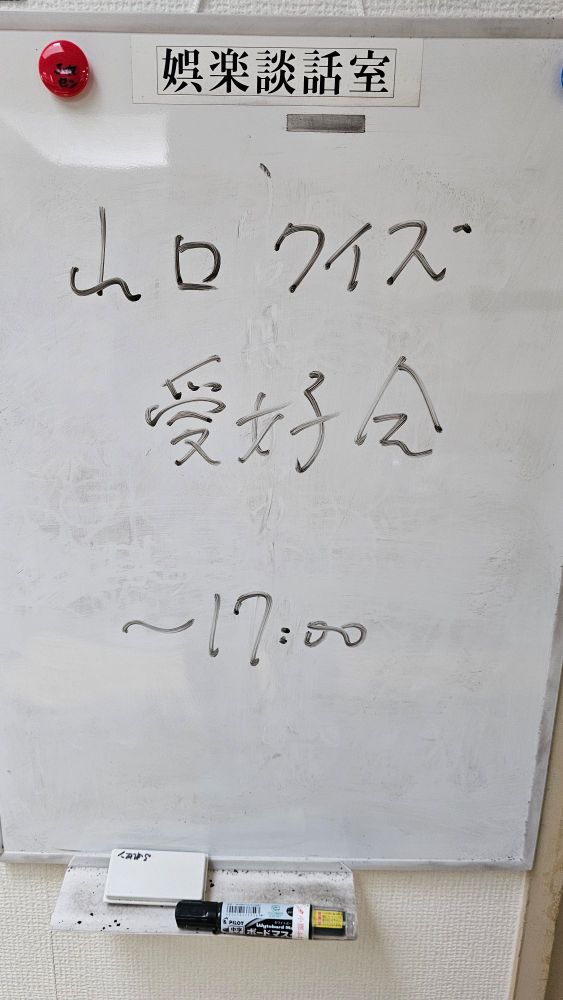 娯楽談話室
山口クイズ
愛好会
～17:00
PILOT
中字
ボードマス